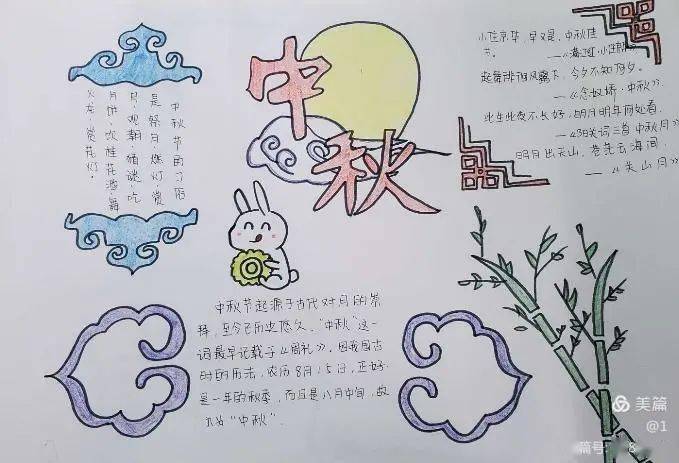 中秋
中秋节的习俗
是祭月、燃灯、赏
月、观潮、猜谜、吃
月饼、饮桂花酒、舞
火龙、赏花灯.
小住京华,早又是,中秋佳
节。
——《满江红·小住京华》
起舞徘徊风露下,今夕不知何夕。
——《念奴娇·中秋》
此生此夜不长好,明月明年何处看.
——《阳关词三首 中秋月》
明月出天山,苍茫云海间.
——《关山月》
中秋节起源于古代对月的崇
拜,至今已历史悠久.“中秋”这一
词最早记载于《周礼》。因我国古
时的历法,农历8月15日,正好
是一年的秋季,而且是八月中间,故
“中秋”.
美篇
@1
篇号: 8